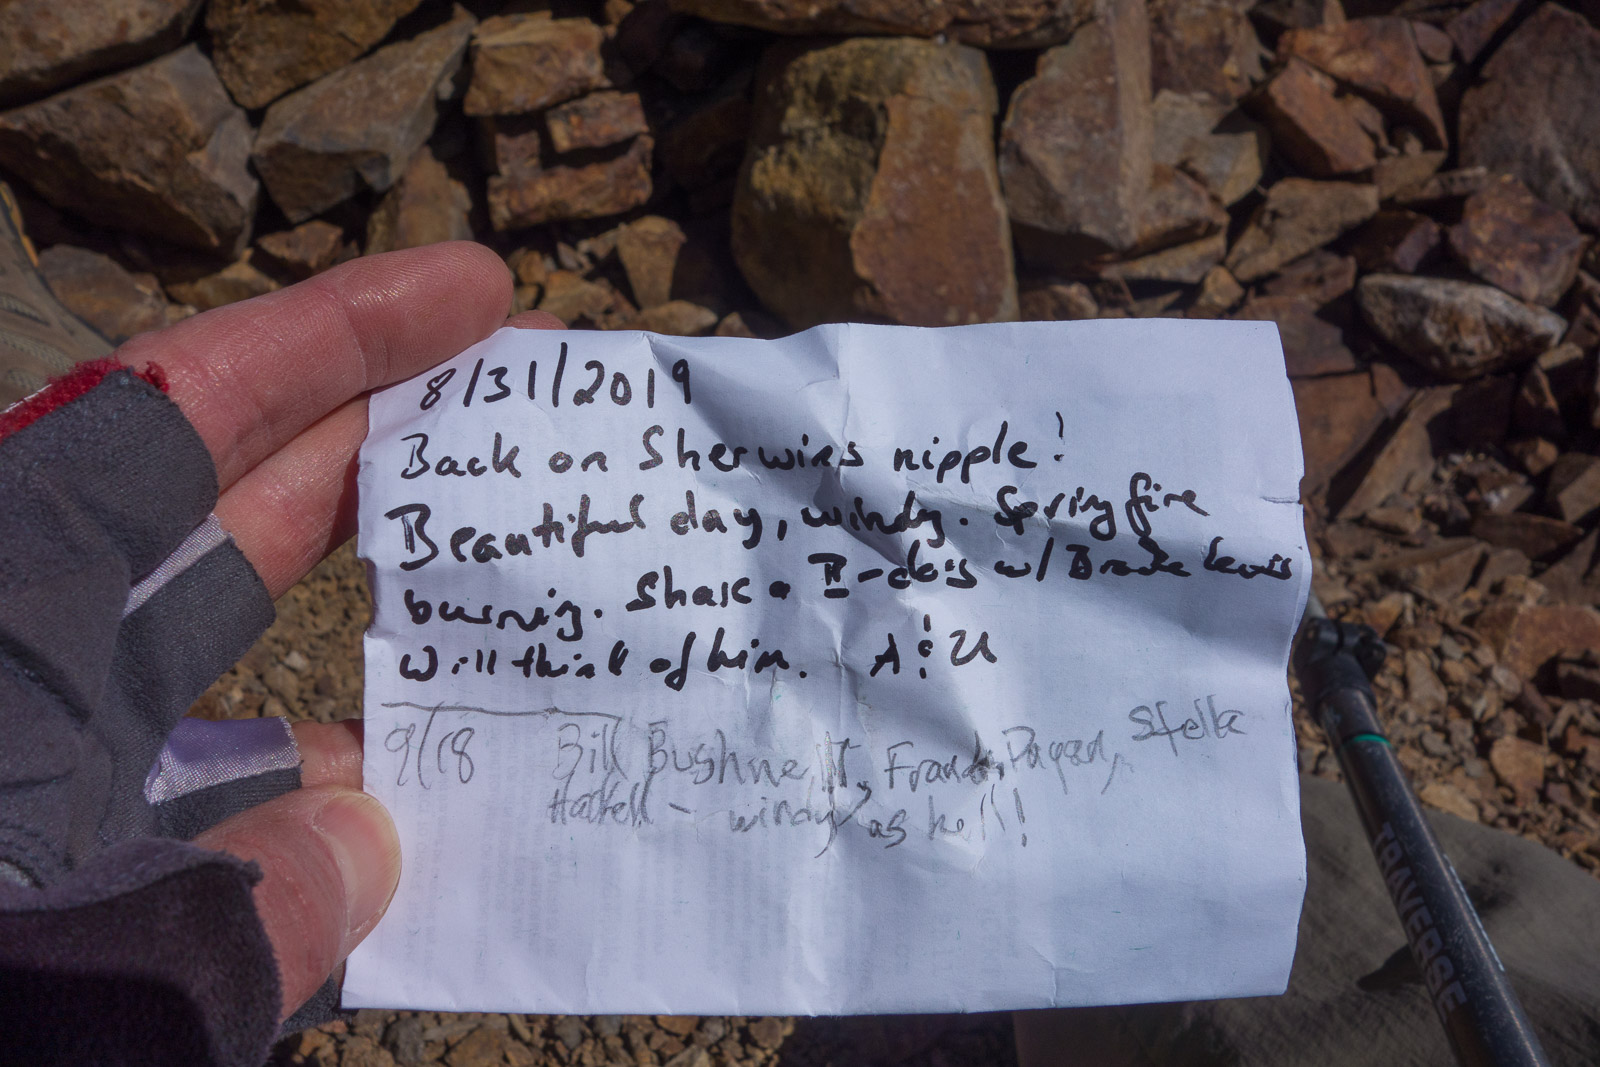 8/31/2019
Back on Sherwins nipple!
Beautiful day, windy. Springfire
burning. Share a B-day w/ Lewis
Will think of him. A
9/18 Bill Bushnell, Frank Stella
Haskell - windy as hell!
TRAVERSE